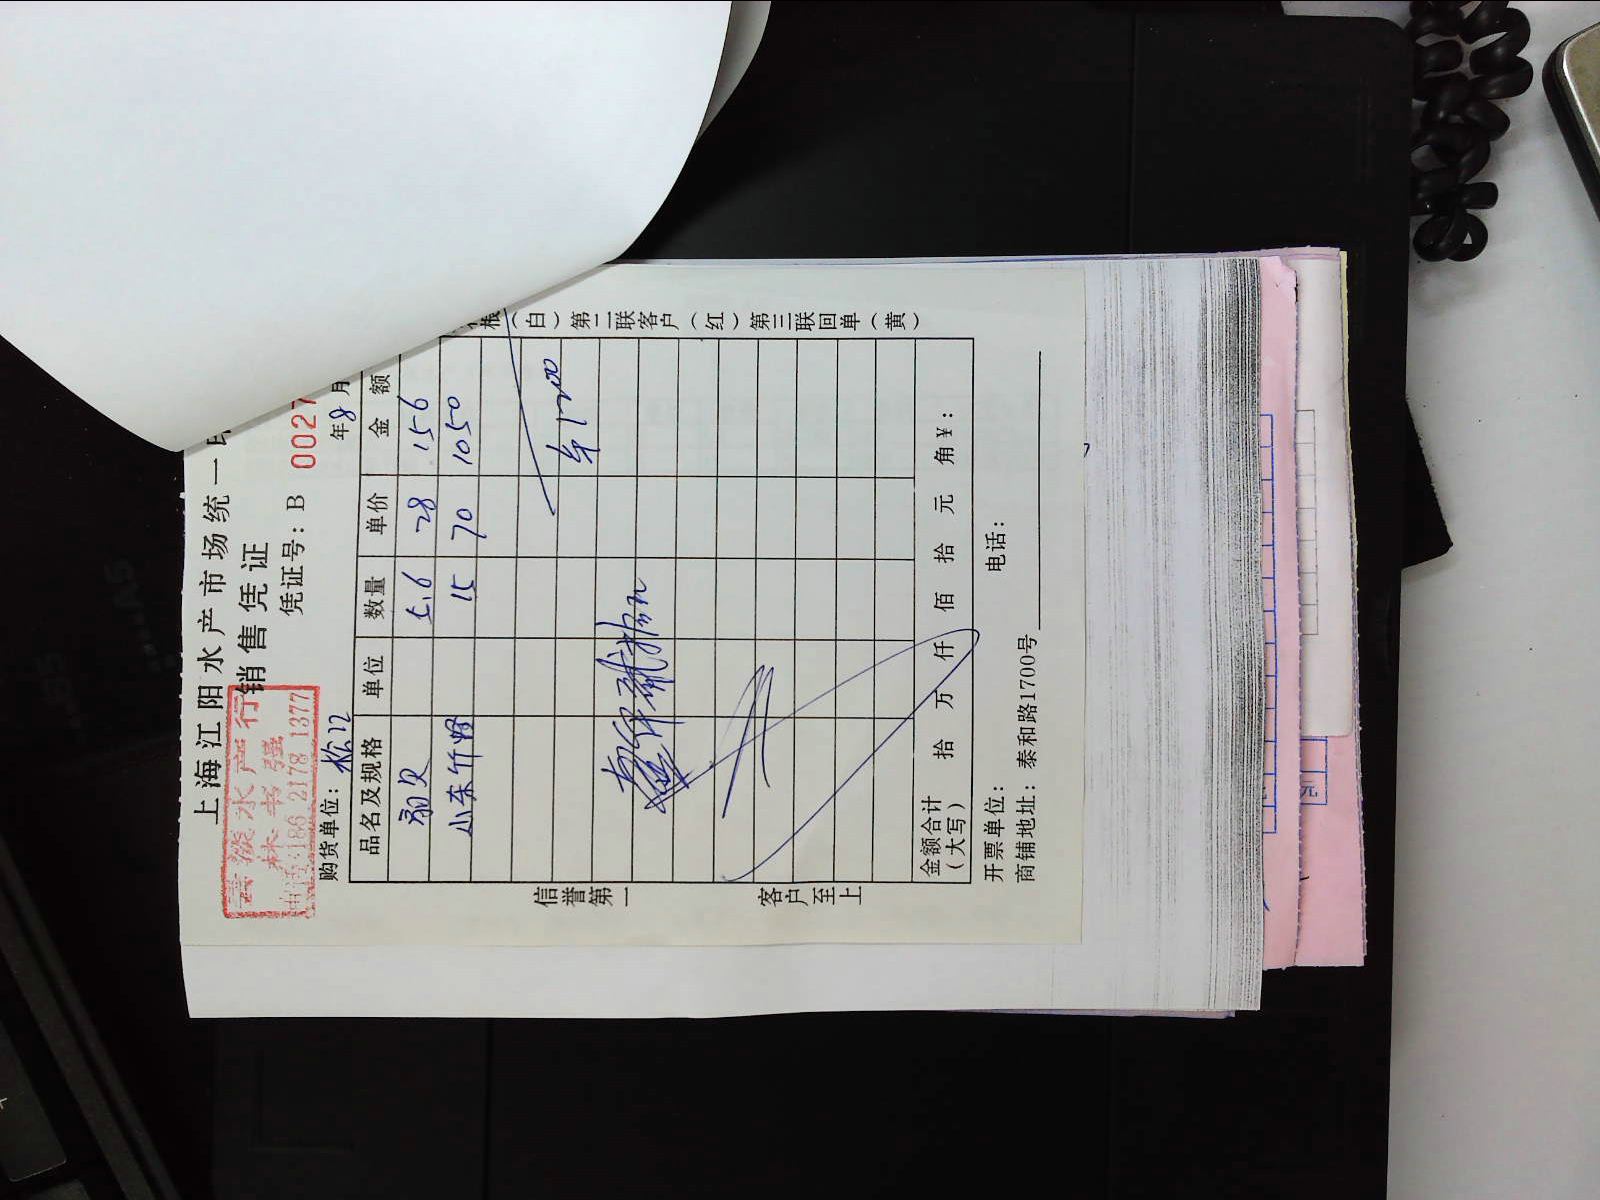 上海江阳水产市场统一
销售凭证
凭证号：B 0027
水产行
林书强
2178 1377
购货单位：松江
年8月
品名及规格 单位 数量 单价 金额
5.6 28 156
15 70 1050
信誉第一
客户至上
金额合计（大写） 拾 万 仟 佰 拾 元 角 ￥：
开票单位： 电话：
商铺地址：泰和路1700号
根（白）第二联客户（红）第三联回单（黄）